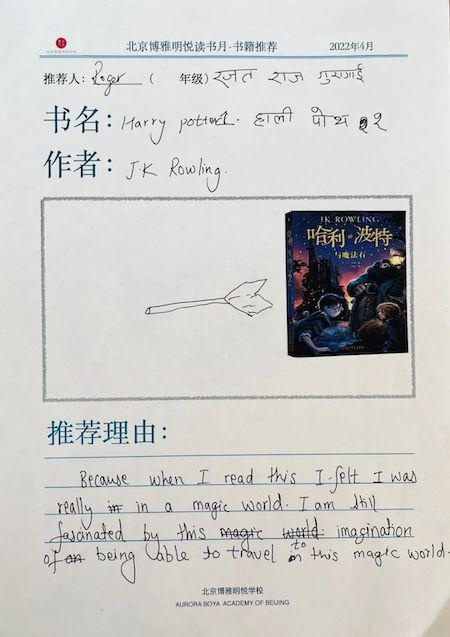 北京博雅明悦读书月·书籍推荐 2022年4月
推荐人: Roger ( 年级) रजत राज गुरागाई
书名: Harry potter1. हाली पौथ १
作者: J.K Rowling.
J.K. ROWLING
哈利·波特
与魔法石
推荐理由:
Because when I read this I felt I was
really in in a magic world. I am still
fasanated by this magic world imagination
of an being able to travel in to this magic world.
北京博雅明悦学校
AURORA BOYA ACADEMY OF BEIJING